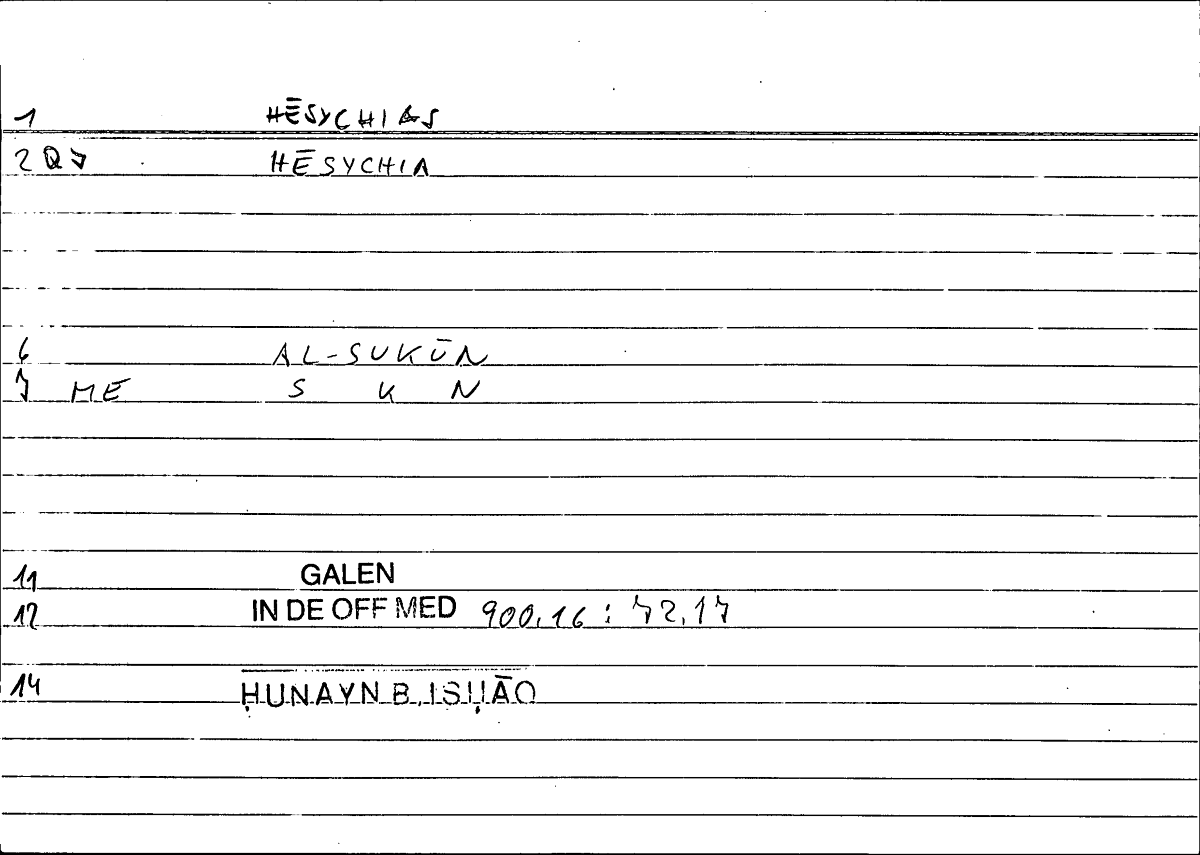 1 HĒSYCHIAS
2 Q7 HĒSYCHIA
6 AL-SUKŪN
7 ME S K N
11 GALEN
12 IN DE OFF MED 900,16 : 72,17
14 ḤUNAYN B. ISḤĀQ